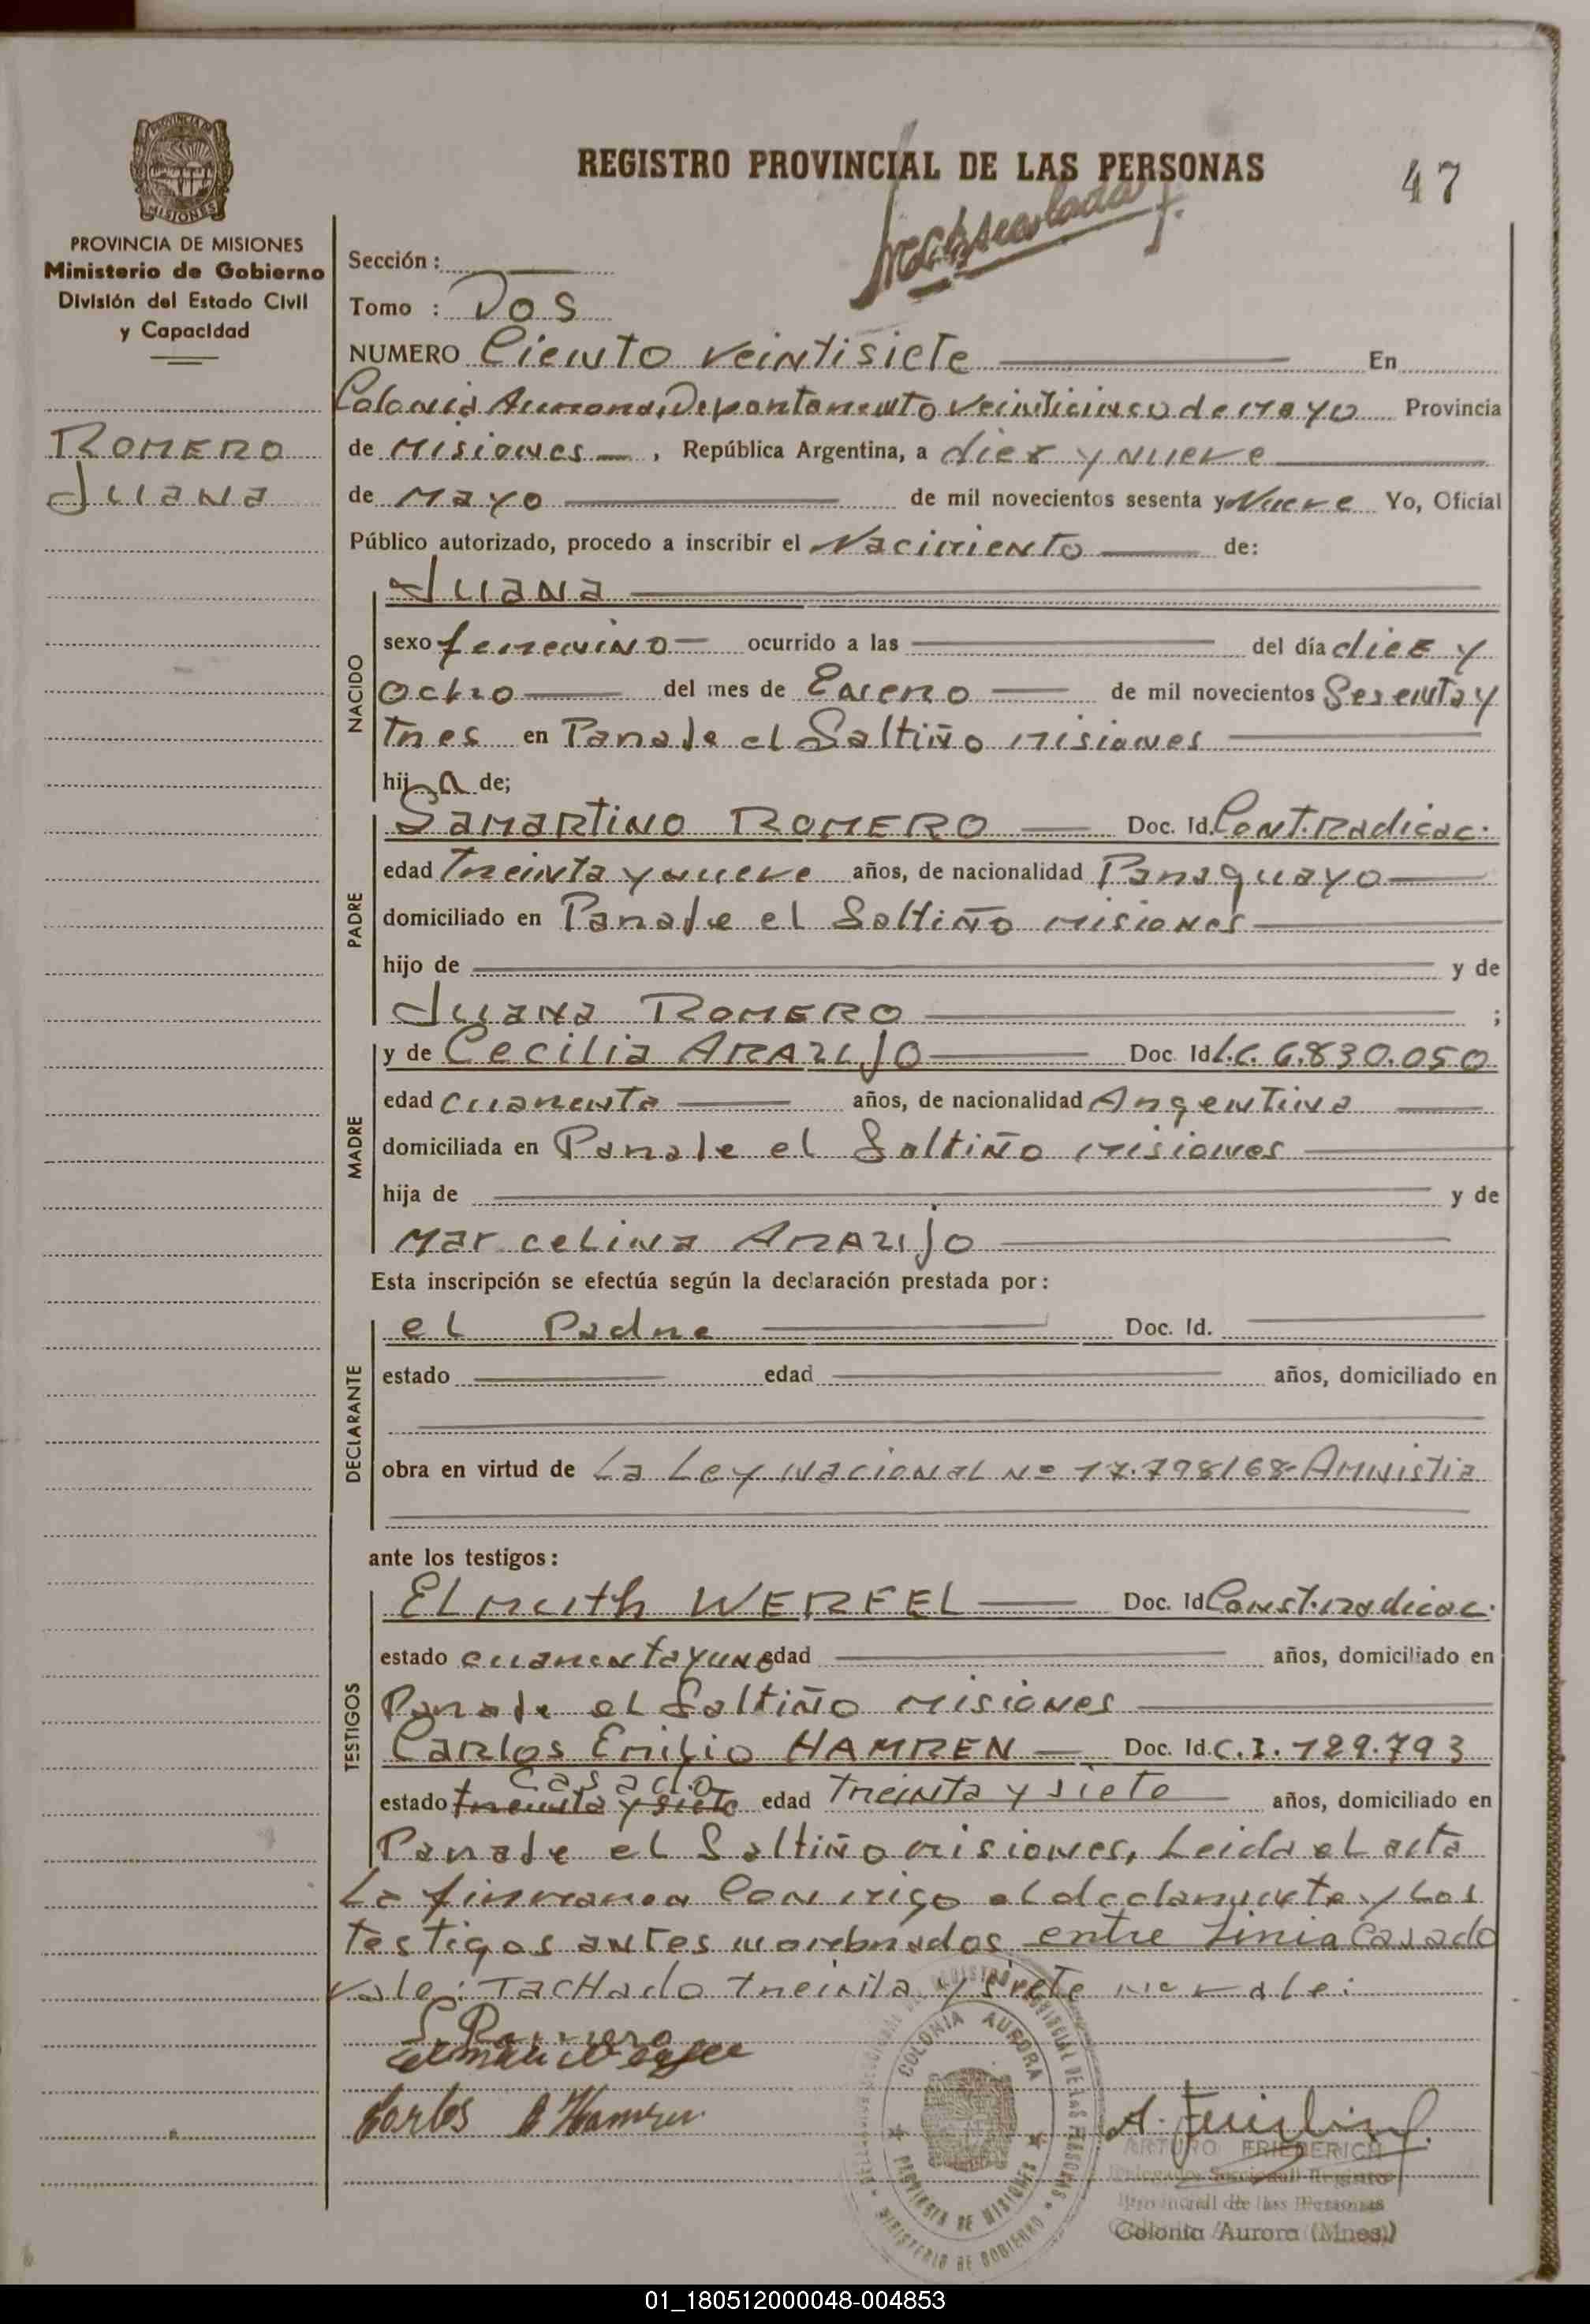 REGISTRO PROVINCIAL DE LAS PERSONAS
47
PROVINCIA DE MISIONES
Ministerio de Gobierno
División del Estado Civil
y Capacidad
ROMERO
Juana
Sección :
Tomo : Dos
NUMERO Ciento veintisiete En
Colonia Aurora, Departamento veinticinco de mayo Provincia
de Misiones, República Argentina, a diez y nueve
de Mayo de mil novecientos sesenta y Nueve Yo, Oficial
Público autorizado, procedo a inscribir el Nacimiento de:
NACIDO
Juana
sexo femenino ocurrido a las del día diez y
Ocho del mes de Enero de mil novecientos Sesenta y
tres en Paraje el Saltiño misiones
hij a de;
PADRE
Samartino ROMERO Doc. Id. Cert. Radicac.
edad Treinta y nueve años, de nacionalidad Paraguayo
domiciliado en Paraje el Saltiño misiones
hijo de y de
Juana ROMERO ;
MADRE
y de Cecilia ARAUJO Doc Id L.C. 6.830.050
edad cuarenta años, de nacionalidad Argentina
domiciliada en Paraje el Saltiño misiones
hija de y de
Marcelina ARAUJO
Esta inscripción se efectúa según la declaración prestada por :
DECLARANTE
el Padre Doc. Id.
estado edad años, domiciliado en
obra en virtud de La Ley Nacional Nº 17.798/68 Amnistia
ante los testigos :
TESTIGOS
Elmuth WERFEL Doc. Id Const. radicac.
estado cuarenta y uno edad años, domiciliado en
Paraje el Saltiño misiones
Carlos Emilio HAMREN Doc. Id. C.I. 129.793
casado
estado treinta y siete edad Treinta y siete años, domiciliado en
Paraje el Saltiño misiones, Leida el acta
La firmaron Conmigo el declarante y los
testigos antes nombrados entre Linia Casado
vale: Tachado treinta y siete no vale:
S. Romero
Carlos E Hamren
COLONIA AURORA
PROVINCIA DE MISIONES
MINISTERIO DE GOBIERNO
ARTURO FRIEDERICH
Delegado Seccional Registro
Provincial de las Personas
Colonia Aurora (Mnes.)
01_180512000048-004853